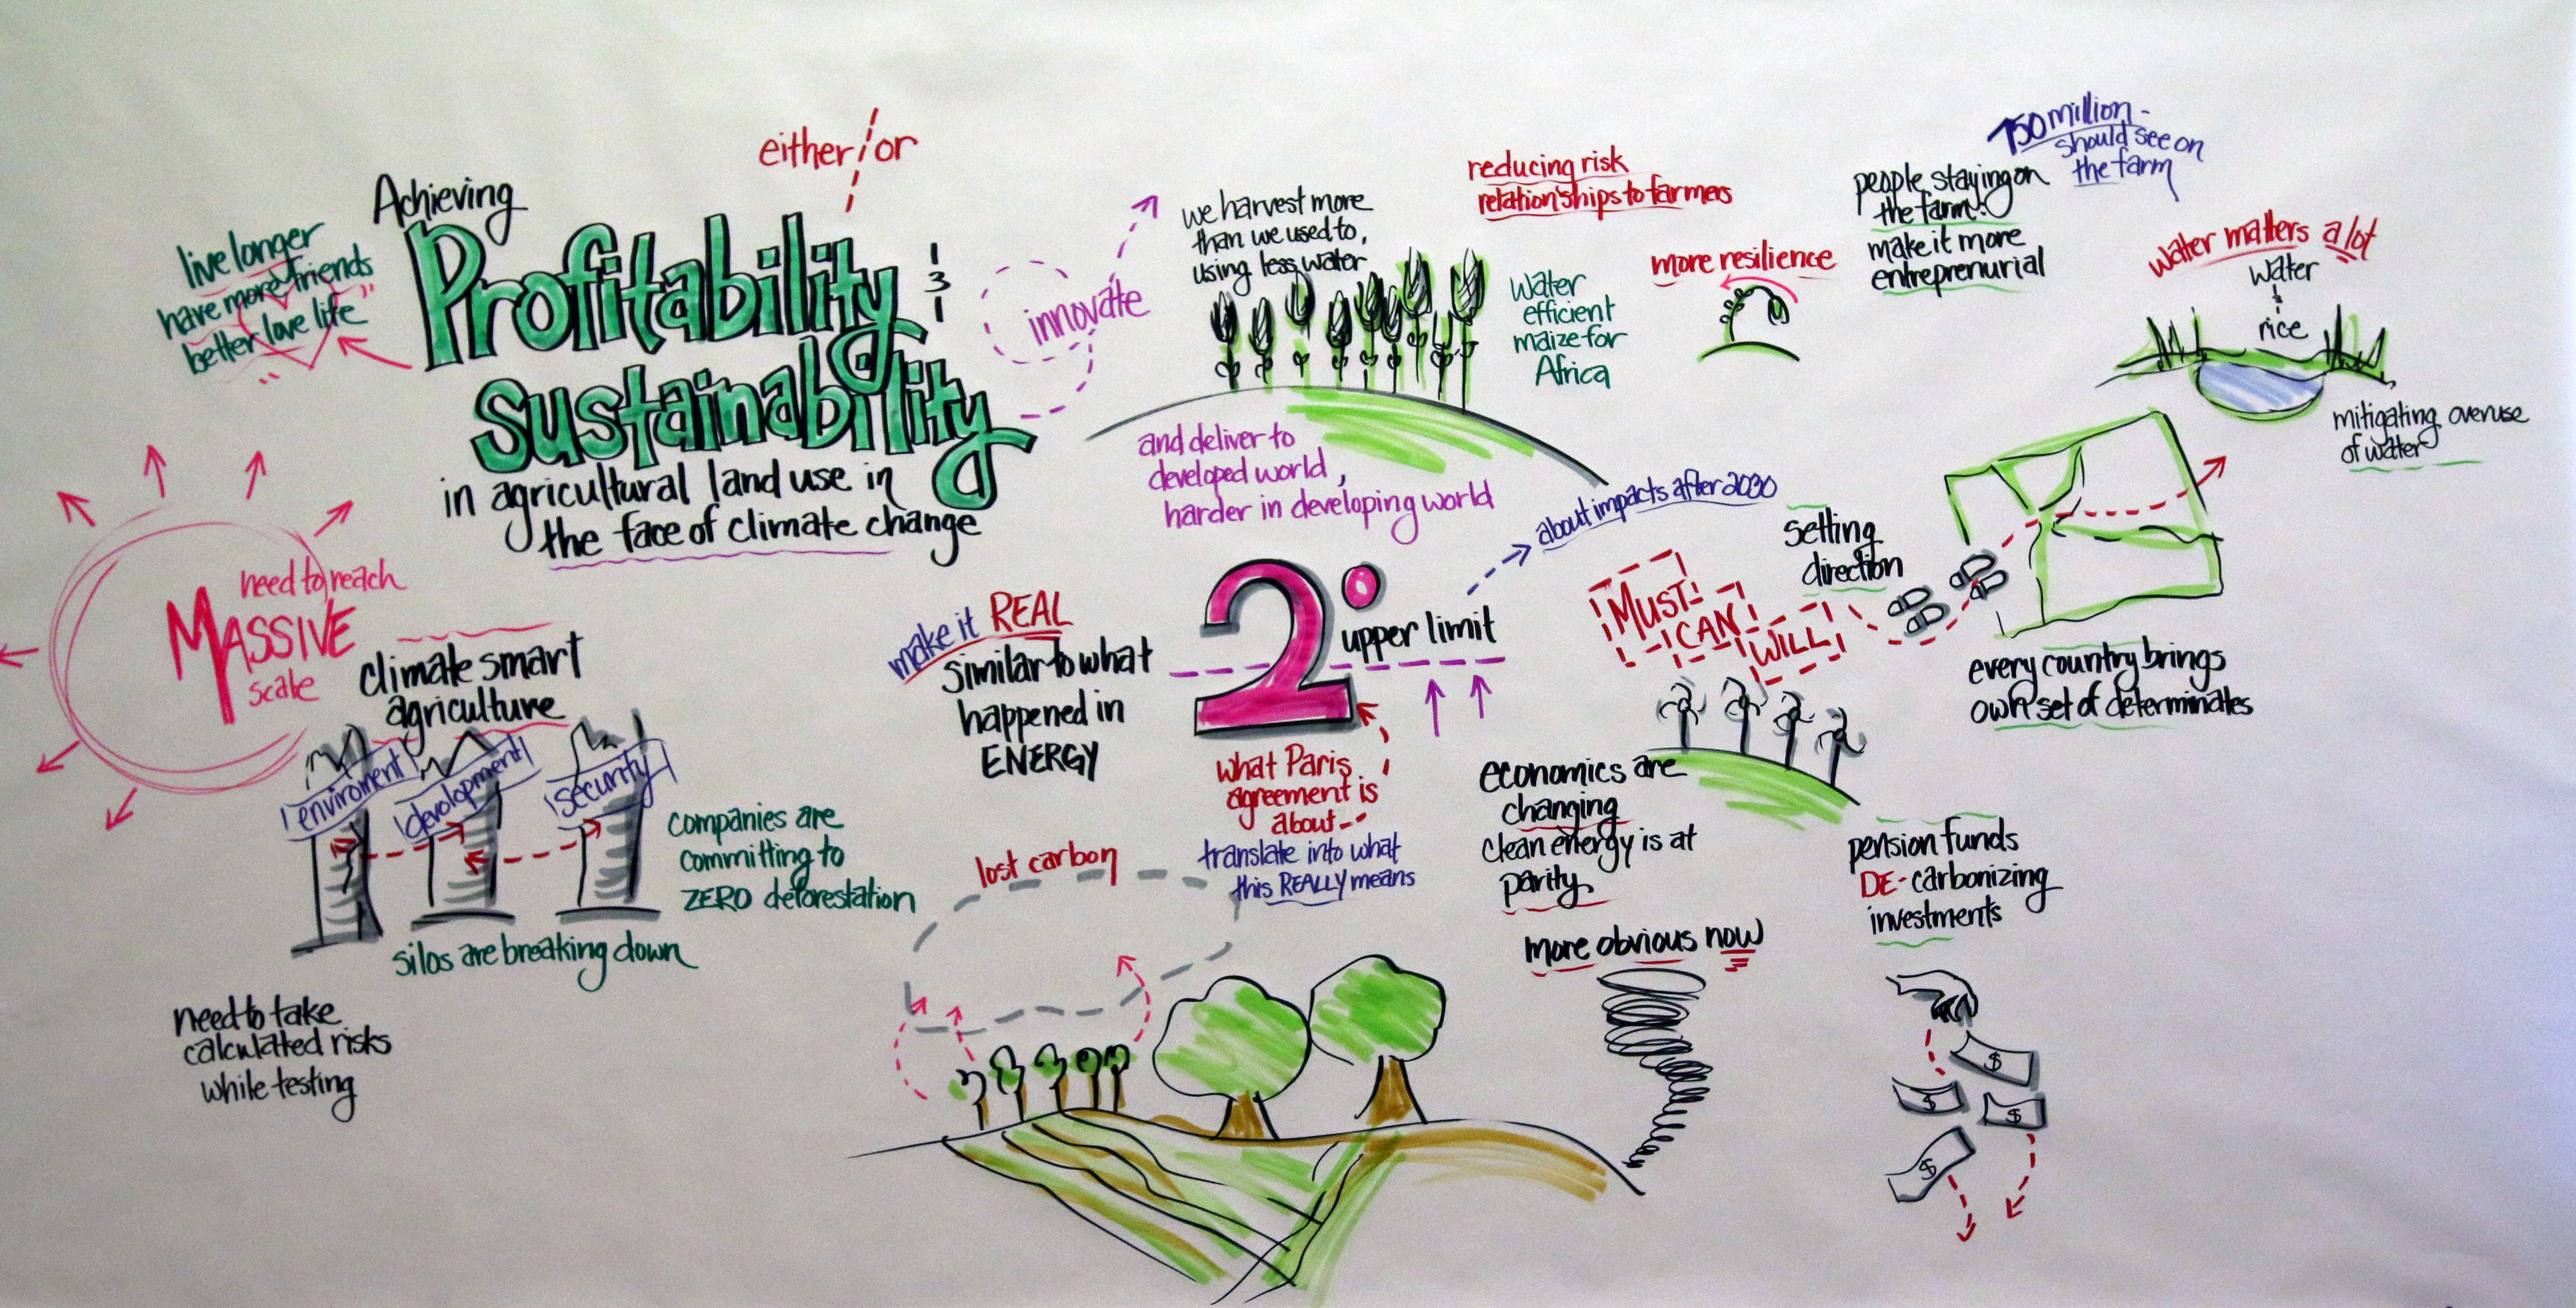 either/or
Achieving
Profitability
&
sustainability
in agricultural land use in
the face of climate change
live longer
have more friends
better love life"
innovate
we harvest more
than we used to,
using less water
and deliver to
developed world,
harder in developing world
reducing risk
relationships to farmers
Water
efficient
maize for
Africa
more resilience
people staying on
the farm:
make it more
entreprenurial
750 million -
should see on
the farm
water matters a lot
water
&
rice
mitigating overuse
of water
need to reach
MASSIVE
scale
climate smart
agriculture
enviroment
development
security
silos are breaking down
companies are
committing to
ZERO deforestation
need to take
calculated risks
while testing
make it REAL
similar to what
happened in
ENERGY
2°
upper limit
about impacts after 2030
what Paris
agreement is
about
translate into what
this REALLY means
lost carbon
MUST
CAN
WILL
setting
direction
every country brings
own set of determinates
economics are
changing
clean energy is at
parity
more obvious now
pension funds
DE-carbonizing
investments
$
$
$
$